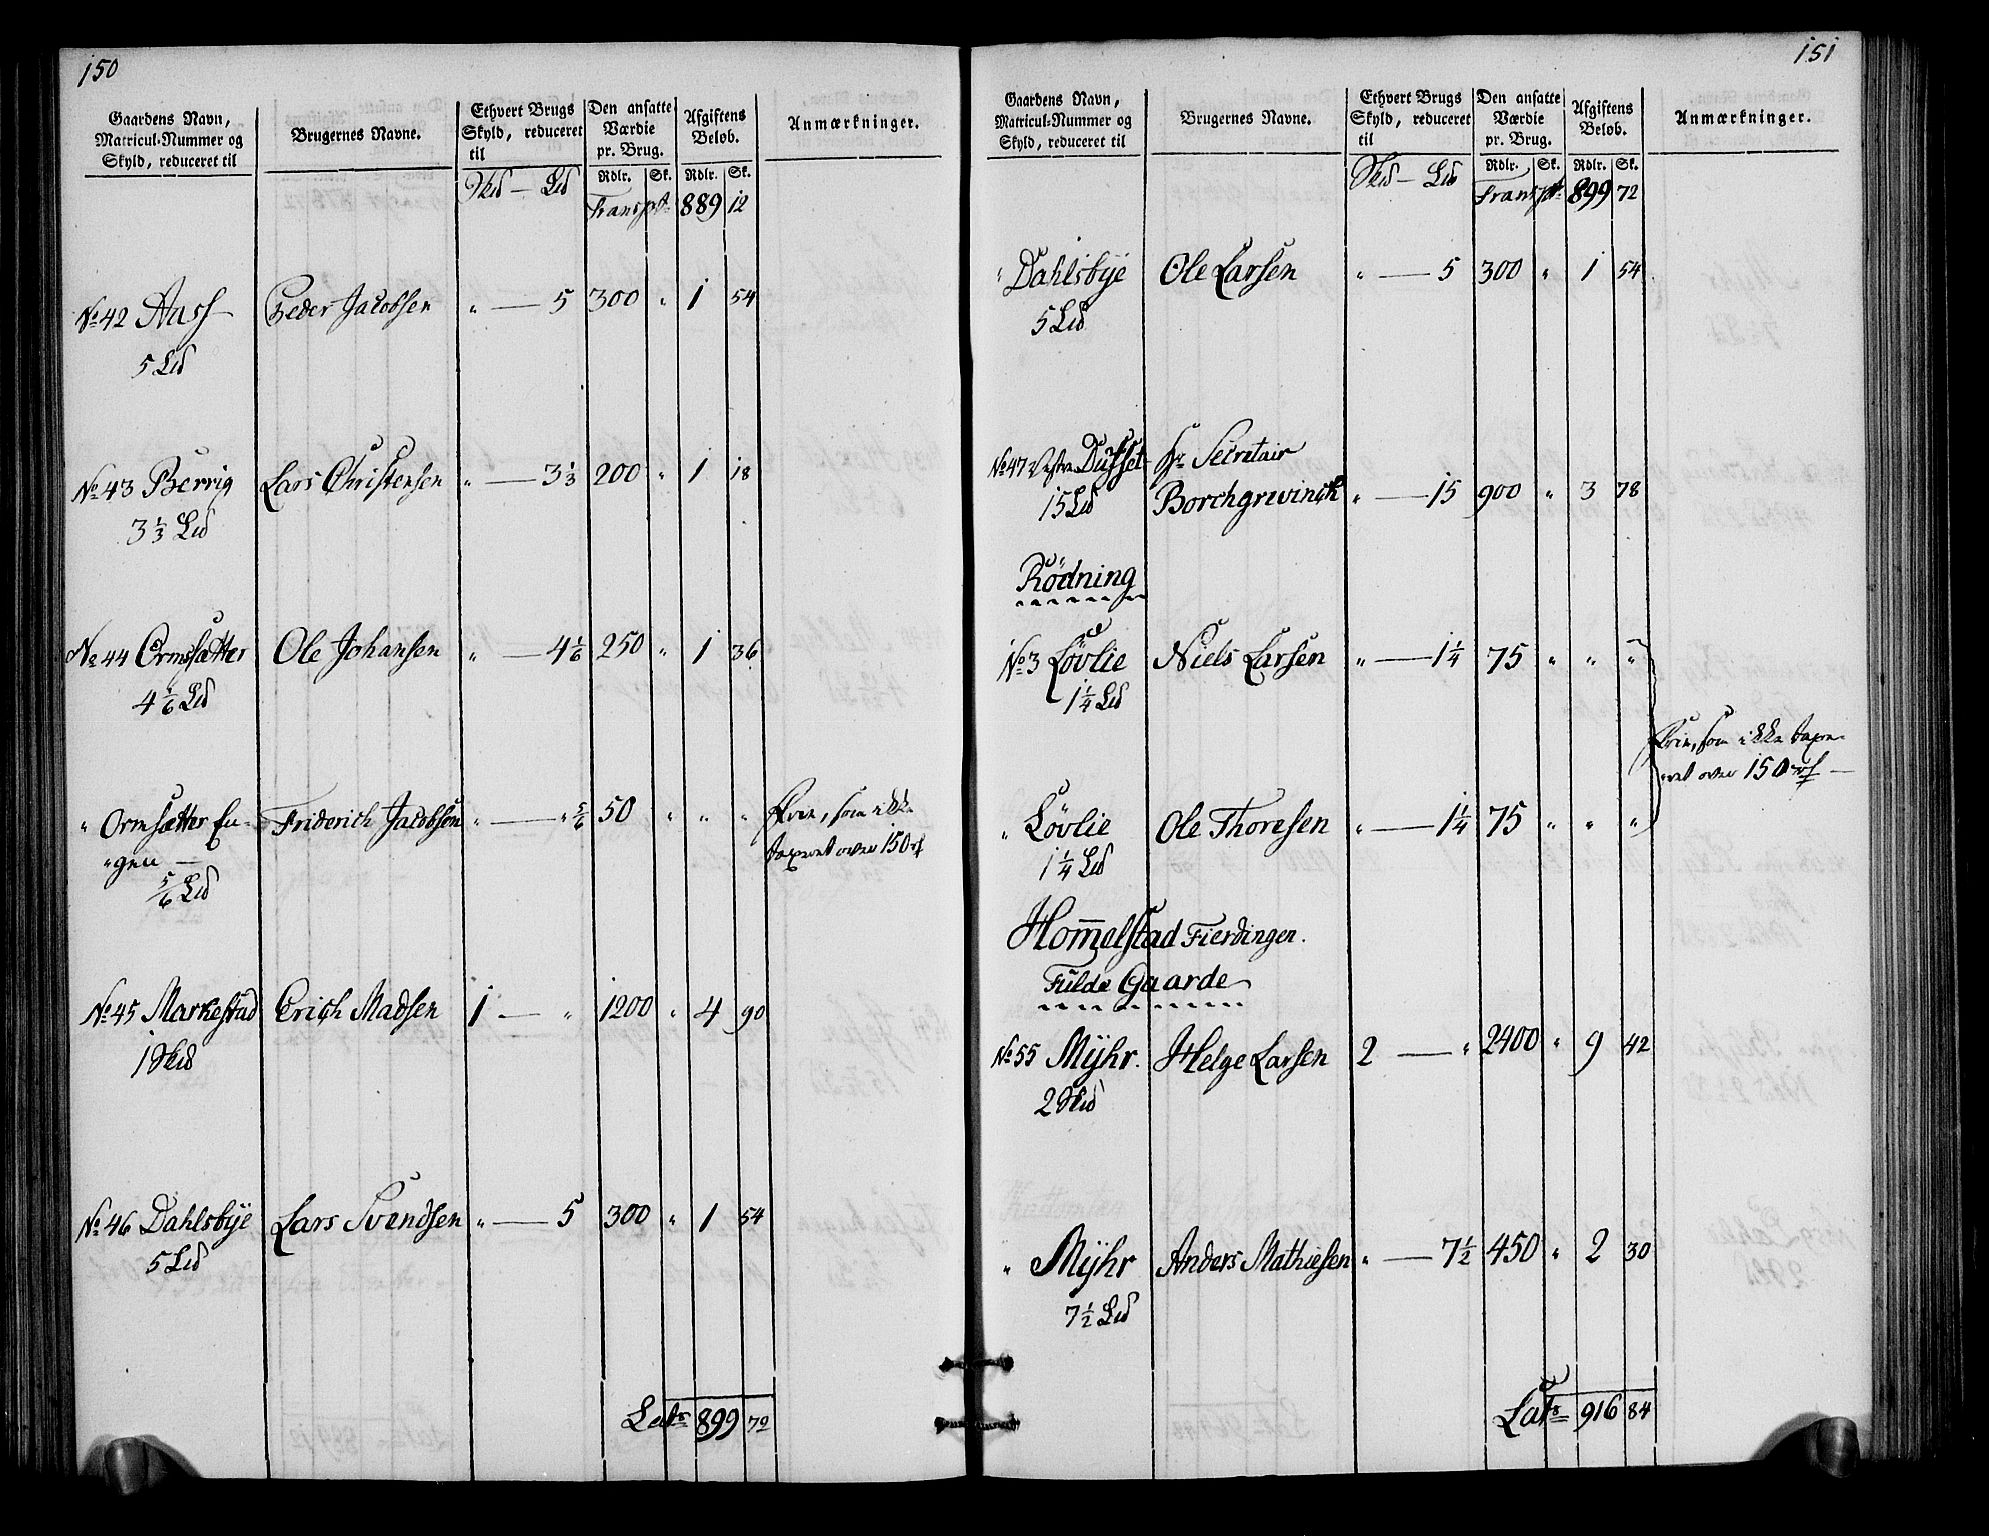 150
Gaardens Navn, Matricul-Nummer og Skyld, reduceret til
Brugernes Navne.
Ethvert Brugs Skyld, reduceret til
Den ansatte Værdie pr. Brug.
Afgiftens Beløb.
Anmærkninger.
Skd — Ld
Rdlr. Sk. Rdlr. Sk.
Transpt. 889 12
No. 42 Aass Peder Jacobsen „ — 5 300 „ 1 54
5 Ld
No. 43 Berrig Lars Christensen „ — 3 1/3 200 „ 1 18
3 1/3 Ld
No 44 Ormsætter Ole Johansen „ — 4 1/6 250 „ 1 36
4 1/6 Ld
„ Ormsætter En- Friderich Jacobsen „ — „ 5/6 50 „ „ „ Frie, som ikke
„gen — taxeret over 150 rd
5/6 Ld
No. 45 Markestad Erich Madsen 1 — „ 1200 „ 4 90
1 Skd
No. 46 Dahlsbye Lars Svendsen „ — 5 300 „ 1 54
5 Ld
Lats 899 72
151
Gaardens Navn, Matricul-Nummer og Skyld, reduceret til
Brugernes Navne.
Ethvert Brugs Skyld, reduceret til
Den ansatte Værdie pr. Brug.
Afgiftens Beløb.
Anmærkninger.
Skd — Ld
Rdlr. Sk. Rdlr. Sk.
Transpt. 899 72
„ Dahlsbye Ole Larsen „ — 5 300 „ 1 54
5 Ld
No. 47 Vestre Dusset Hr Secretair
15 Ld Borchgrevinch „ — 15 900 „ 3 78
Rödning
No. 3 Lövlie Niels Larsen „ — 1 1/4 75 „ „ „
1 1/4 Ld
Frie, som ikke taxe-
„ret over 150 rd —
„ Lövlie Ole Thoresen „ — 1 1/4 75 „ „ „
1 1/4 Ld
Hom̄elstad Fierdingen.
Fulde Gaarde
No. 55 Mÿhr. Helge Larsen 2 — „ 2400 „ 9 42
2 Skd
„ Mÿhr Anders Mathiesen „ — 7 1/2 450 „ 2 30
7 1/2 Ld
Lats 916 84